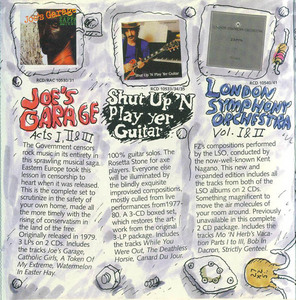 Joe's Garage
RCD/RAC 10530/31
JOE'S
GARAGE
Acts I, II & III
The Government censors
rock music in its entirety in
this sprawling musical saga.
Eastern Europe took this
lesson in censorship to
heart when it was released.
This is the complete set to
scrutinize in the safety of
your own home, made all
the more timely with the
rising of conservatism in
the land of the free.
Original released in 1979
3 LPs on 2 CDs. Includes
the tracks Joe's Garage,
Catholic Girls, A Token Of
My Extreme, Watermelon
In Easter Hay.
Shut Up 'N Play Yer Guitar
RCD 10533/34/35
Shut Up 'N
Play yer
Guitar
100% guitar solos. The
Rosetta Stone for axe
players. Everyone else
will be illuminated by
the blindly exquisite
improvised compositions,
mostly culled from live
performances from 1977-
80. A 3-CD boxed set,
which restores the art-
work from the original
3-LP package. Includes
the tracks While You
Were Out, The Deathless
Horsie, Canard Du Jour.
RCD 10540/41
LONDON
SYMPHONY
ORCHESTRA
Vol. I & II
FZ's compositions performed
by the LSO, conducted by
the now-well-known Kent
Nagano. This new and
expanded edition includes all
the tracks from both of the
LSO albums on 2 CDs.
Something magnificent to
move the air molecules of
your room around. Previously
unavailable in this complete,
2 CD package. Includes the
tracks Mo 'N Herb's Vaca-
tion Parts I to III, Bob In
Dacron, Strictly Genteel.